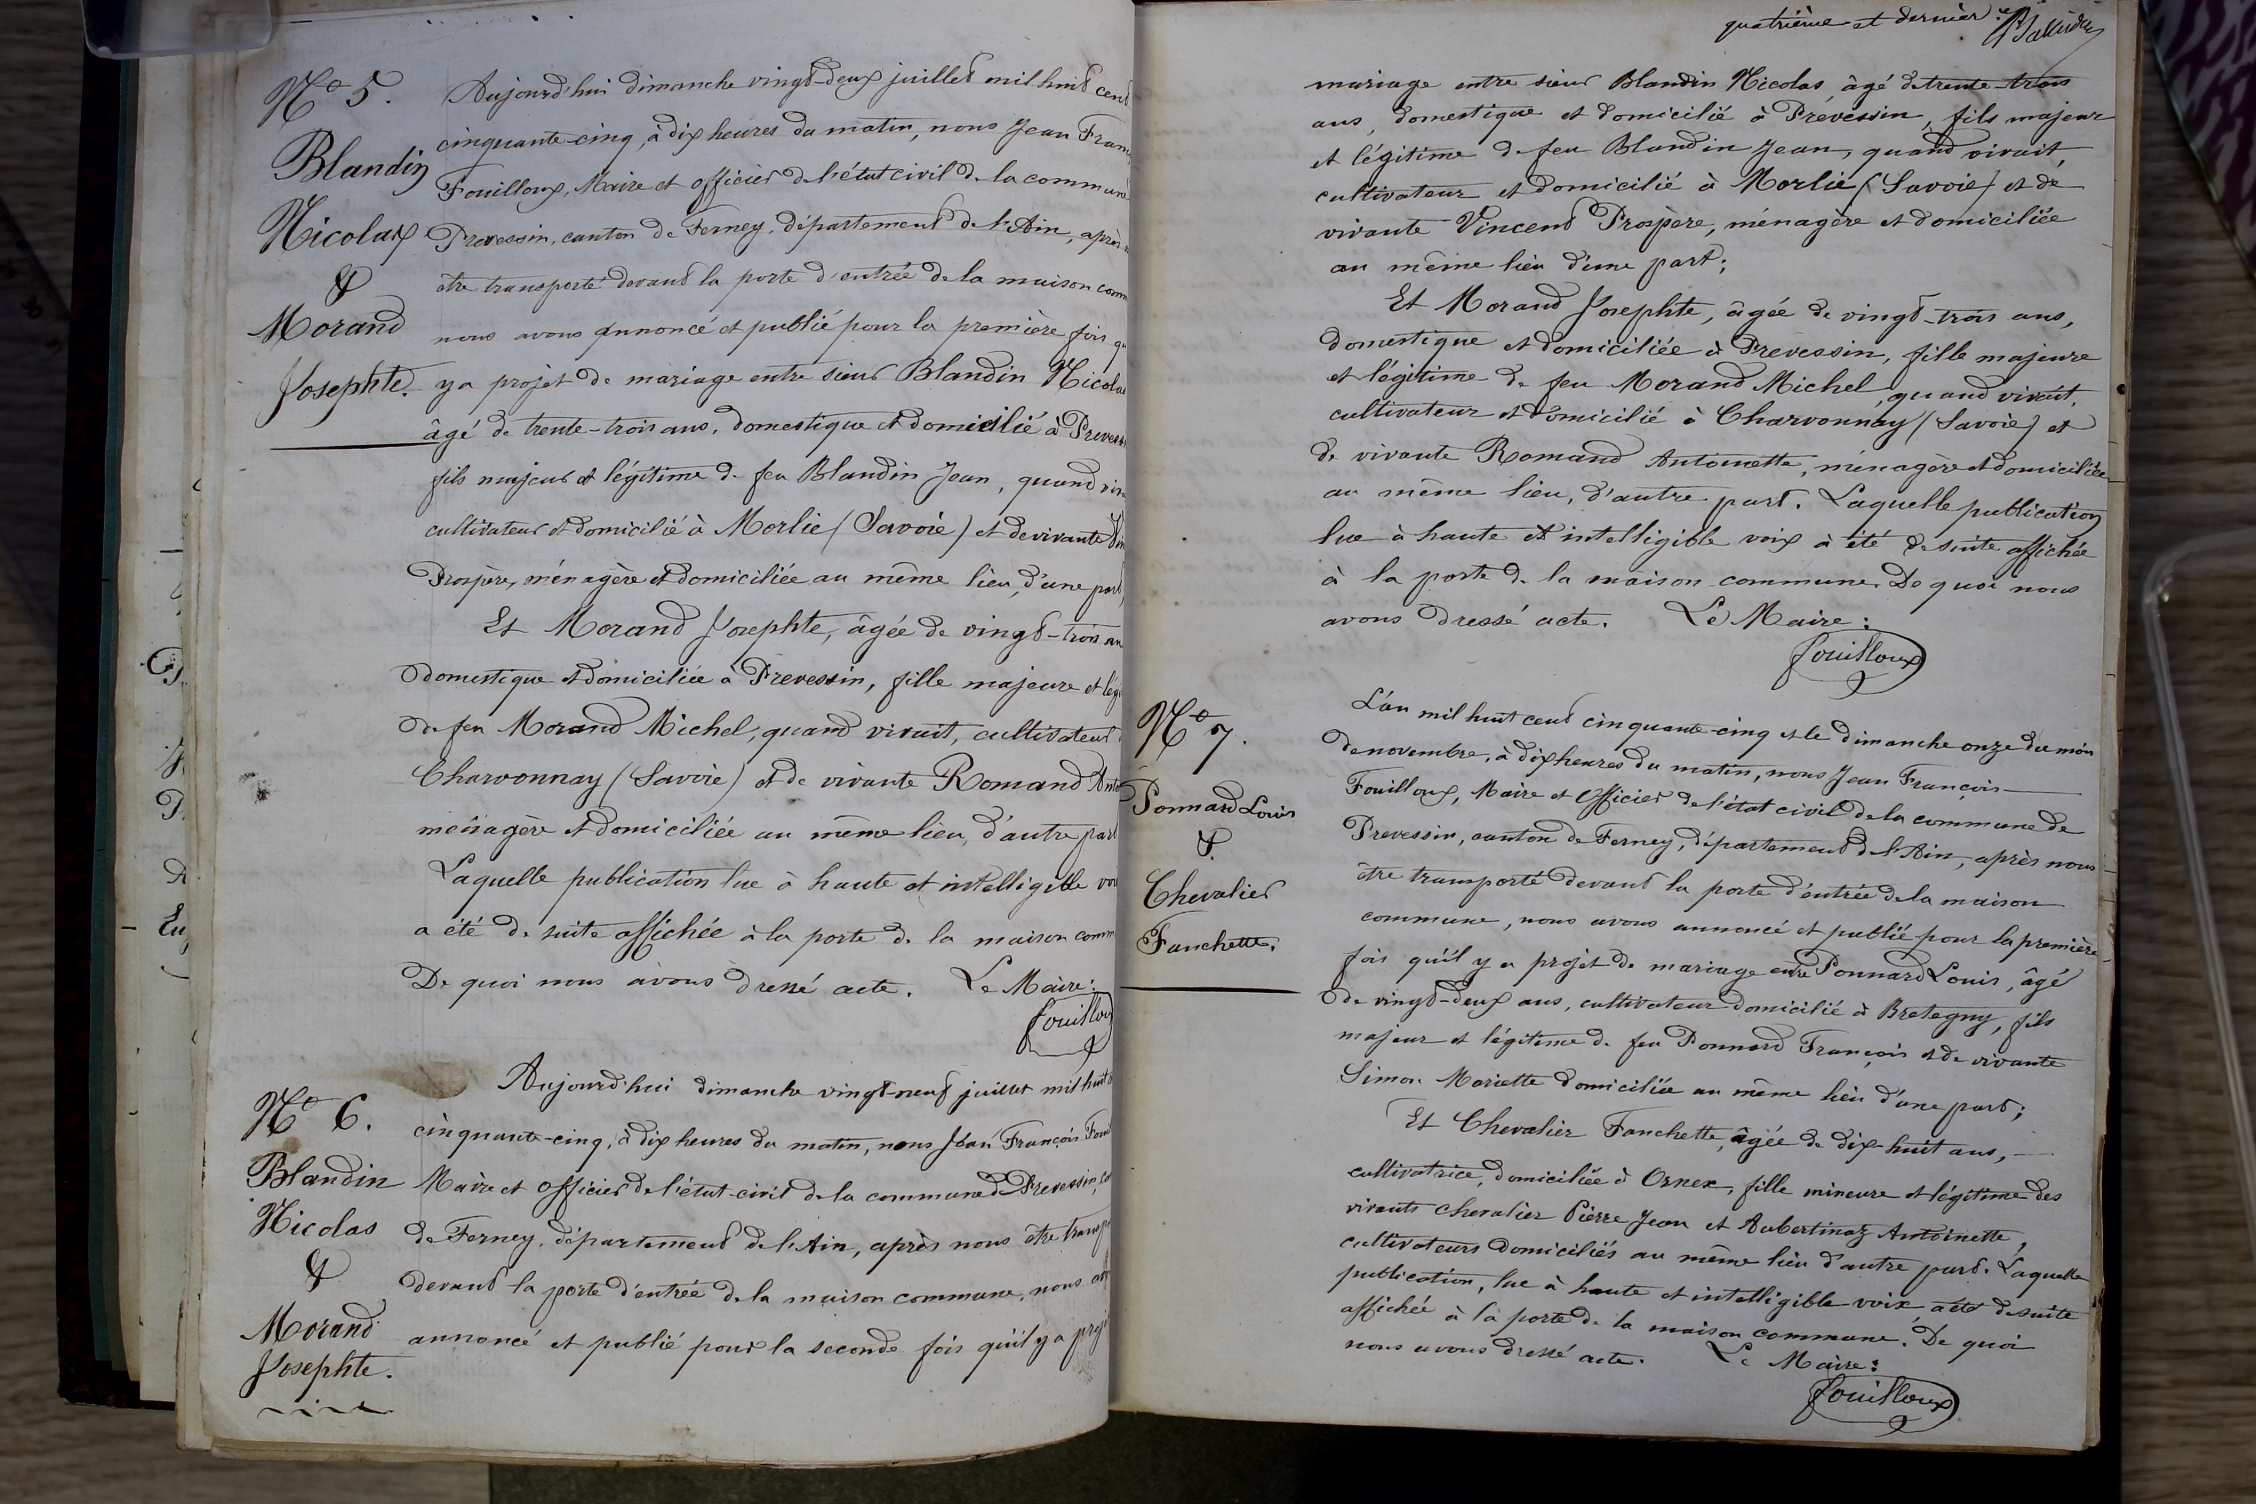 N° 5.
Blandin
Nicolas
&
Morand
Josephte.
Aujourd'hui dimanche vingt-deux juillet mil huit cent
cinquante-cinq, à dix heures du matin, nous Jean Fran
Fouilloux, Maire et officier de l'état civil de la commune
Prevessin, canton de Ferney, département de l'Ain, après
être transporté devant la porte d'entrée de la maison comm
nous avons annoncé et publié pour la première fois qu
y a projet de mariage entre sieur Blandin Nicolas
âgé de trente-trois ans, domestique et domicilié à Preves
fils majeur et légitime de feu Blandin Jean, quand viv
cultivateur et domicilié à Morlie (Savoie) et de vivante Vin
Prospère, ménagère et domiciliée au même lieu, d'une part,
Et Morand Josephte, âgée de vingt-trois an
domestique et domiciliée à Prevessin, fille majeure et légi
de feu Morand Michel, quand vivait, cultivateur
Charvonnay (Savoie) et de vivante Romand Anto
ménagère et domiciliée au même lieu, d'autre part
Laquelle publication lue à haute et intelligible voi
a été de suite affichée à la porte de la maison comm
De quoi nous avons dressé acte. Le Maire:
Fouillou
N° 6.
Blandin
Nicolas
&
Morand
Josephte.
Aujourd'hui dimanche vingt-neuf juillet mil huit c
cinquante-cinq, à dix heures du matin, nous Jean François Foui
Maire et officier de l'état-civil de la commune de Prevessin, ca
de Ferney, département de l'Ain, après nous être transp
devant la porte d'entrée de la maison commune, nous av
annoncé et publié pour la seconde fois qu'il y a proj
quatrième et dernier
mariage entre sieur Blandin Nicolas, âgé de trente-trois
ans, domestique et domicilié à Prevessin, fils majeur
et légitime de feu Blandin Jean, quand vivait,
cultivateur et domicilié à Morlie (Savoie) et de
vivante Vincent Prospère, ménagère et domiciliée
au même lieu d'une part;
Et Morand Josephte, âgée de vingt-trois ans,
domestique et domiciliée à Prevessin, fille majeure
et légitime de feu Morand Michel, quand vivait,
cultivateur et domicilié à Charvonnay (Savoie) et
de vivante Romand Antoinette, ménagère et domiciliée
au même lieu, d'autre part. Laquelle publication
lue à haute et intelligible voix à été de suite affichée
à la porte de la maison commune. De quoi nous
avons dressé acte. Le Maire:
Fouilloux
N° 7.
Ponnard Louis
&
Chevalier
Fanchette.
L'an mil huit cent cinquante-cinq et le dimanche onze du mois
de novembre, à dix heures du matin, nous Jean François
Fouilloux, Maire et officier de l'état civil de la commune de
Prevessin, canton de Ferney, département de l'Ain, après nous
être transporté devant la porte d'entrée de la maison
commune, nous avons annoncé et publié pour la première
fois qu'il y a projet de mariage entre Ponnard Louis, âgé
de vingt-deux ans, cultivateur domicilié à Bretegny, fils
majeur et légitime de feu Ponnard François et de vivante
Simon Mariette domiciliée au même lieu d'une part;
Et Chevalier Fanchette, âgée de dix-huit ans,
cultivatrice, domiciliée à Ornex, fille mineure et légitime des
vivants Chevalier Pierre Jean et Aubertinaz Antoinette,
cultivateurs domiciliés au même lieu d'autre part. Laquelle
publication, lue à haute et intelligible voix, a été de suite
affichée à la porte de la maison commune. De quoi
nous avons dressé acte. Le Maire:
Fouilloux